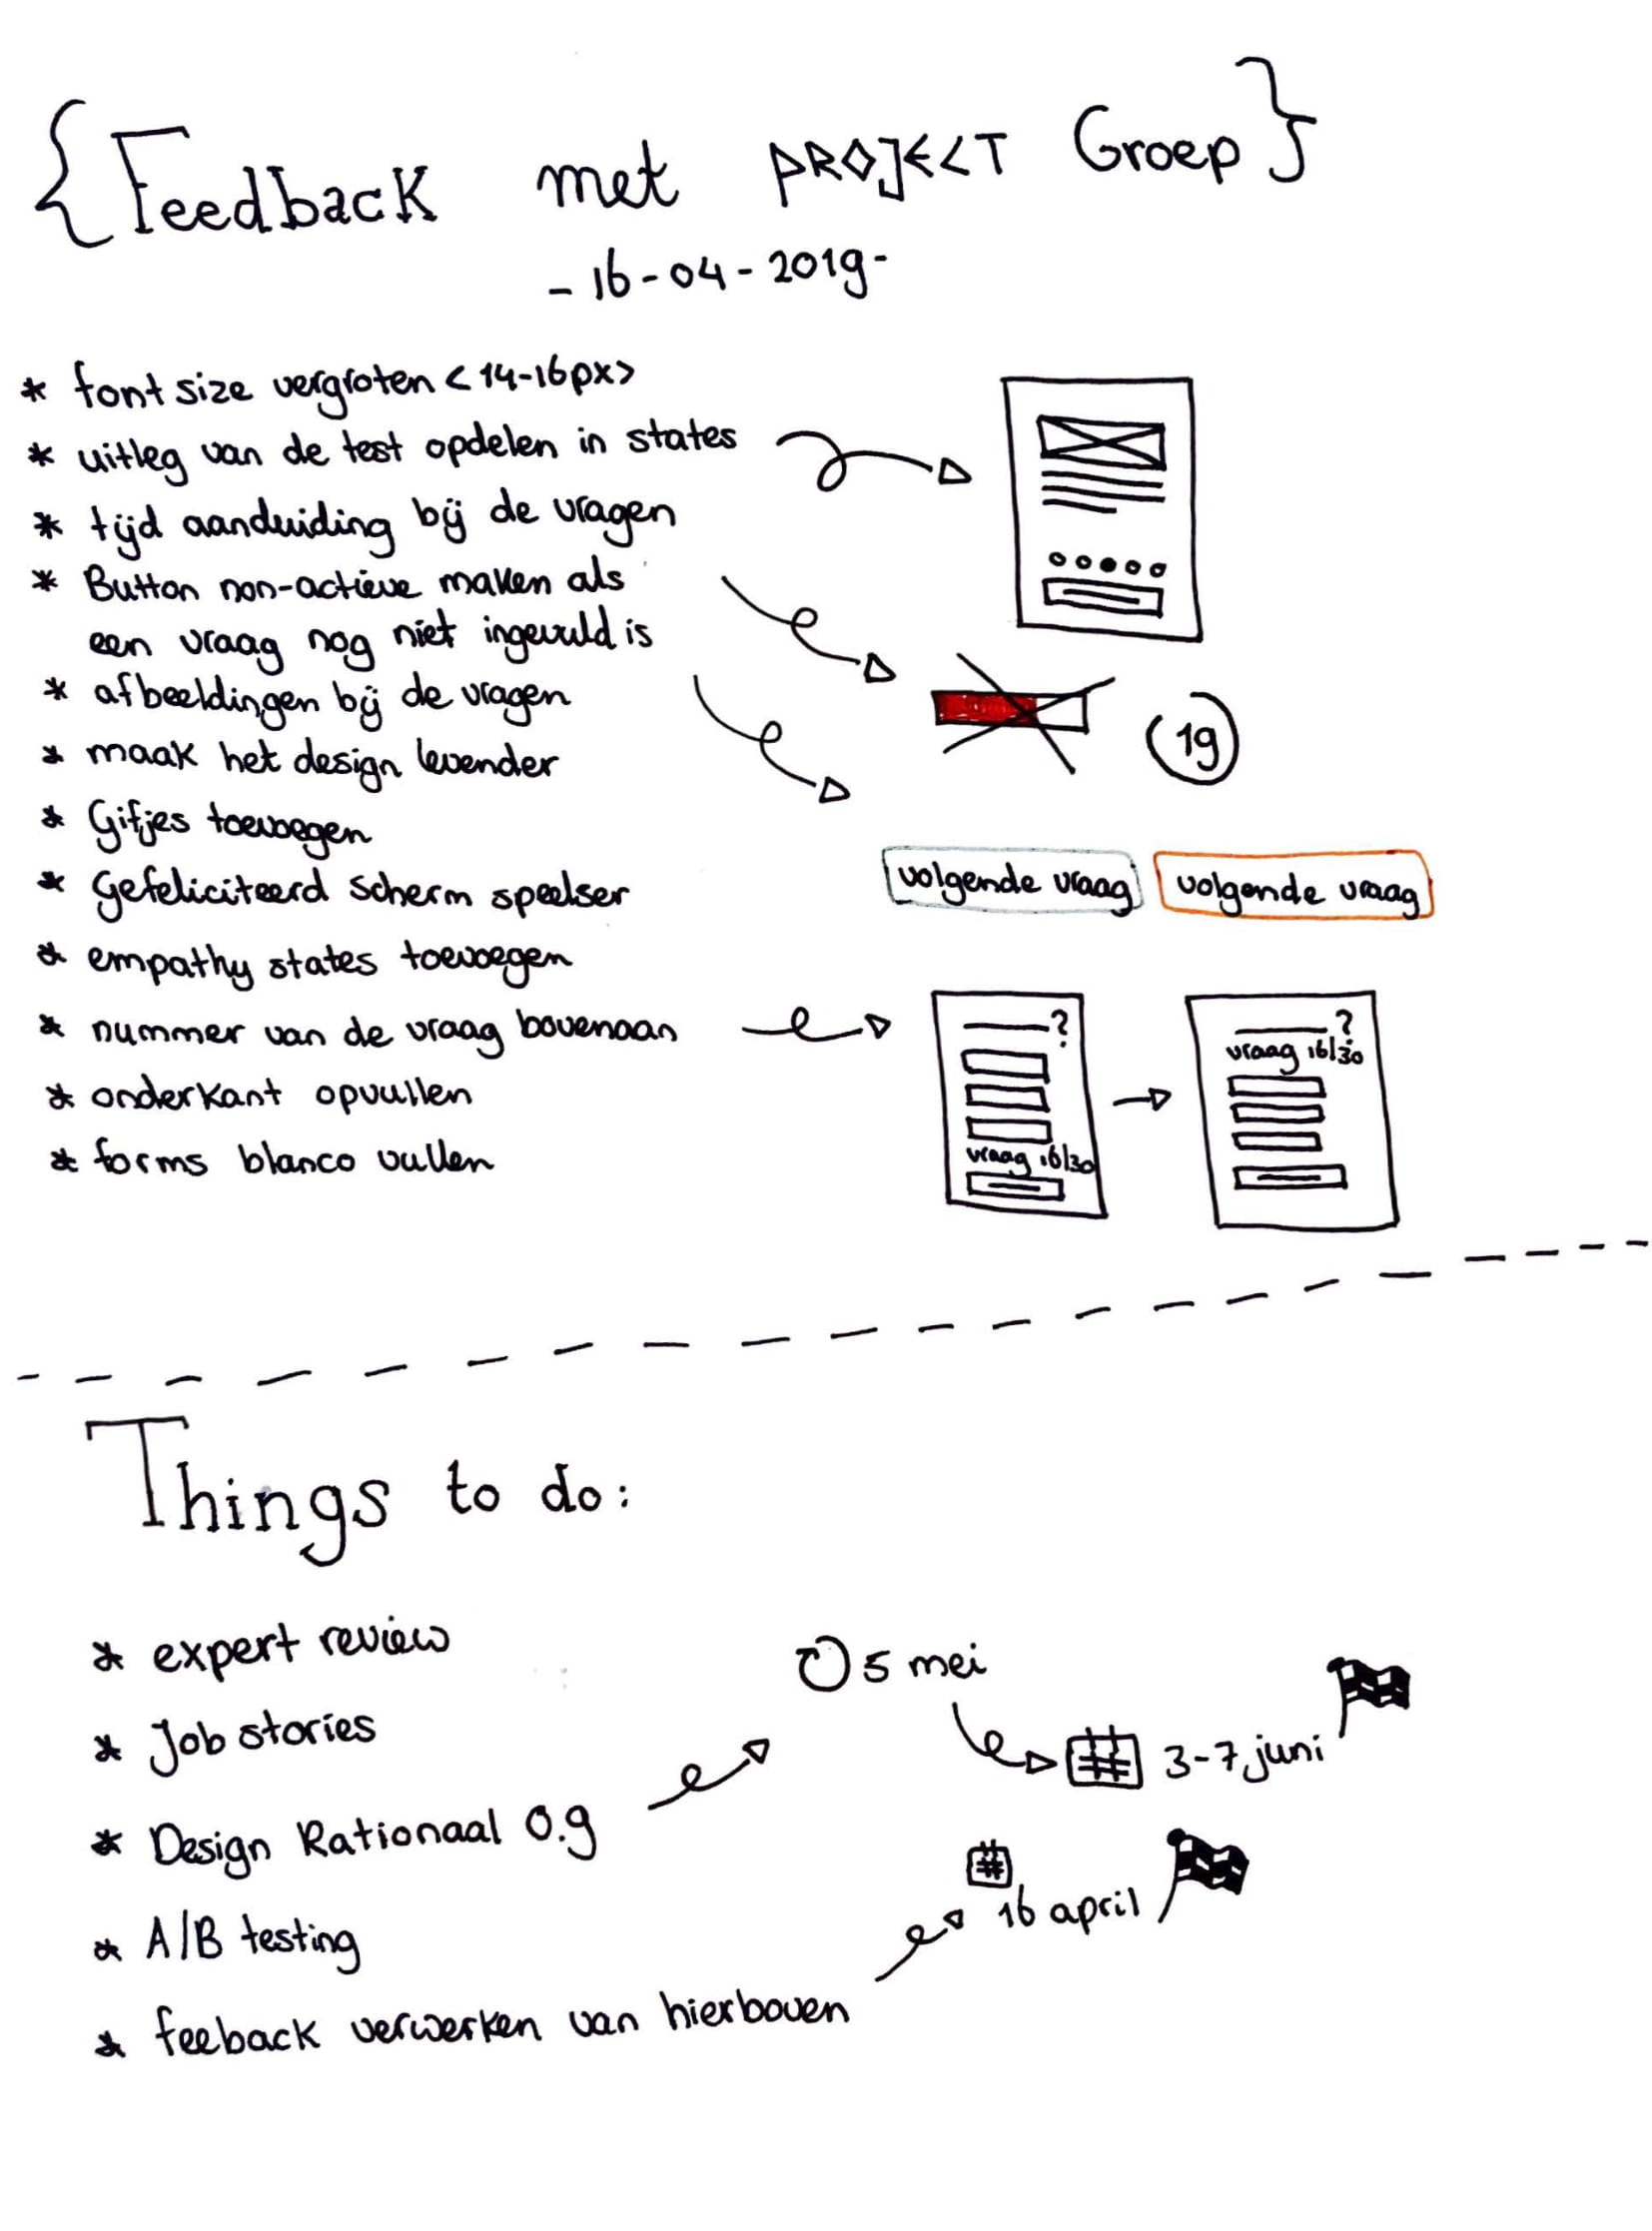 {Feedback met PROJECT Groep}
- 16-04-2019-
* font size vergroten <14-16px>
* uitleg van de test opdelen in states
* tijd aanduiding bij de vragen
* Button non-actieve maken als
een vraag nog niet ingevuld is
* afbeeldingen bij de vragen
* maak het design levender
* Gifjes toevoegen
* Gefeliciteerd scherm speelser
* empathy states toevoegen
* nummer van de vraag bovenaan
* onderkant opvullen
* forms blanco vullen
19
volgende vraag
volgende vraag
?
vraag 16/30
?
vraag 16/30
Things to do:
* expert review
* Job stories
* Design Rationaal 0.9
* A/B testing
* feeback verwerken van hierboven
5 mei
3-7 juni
16 april